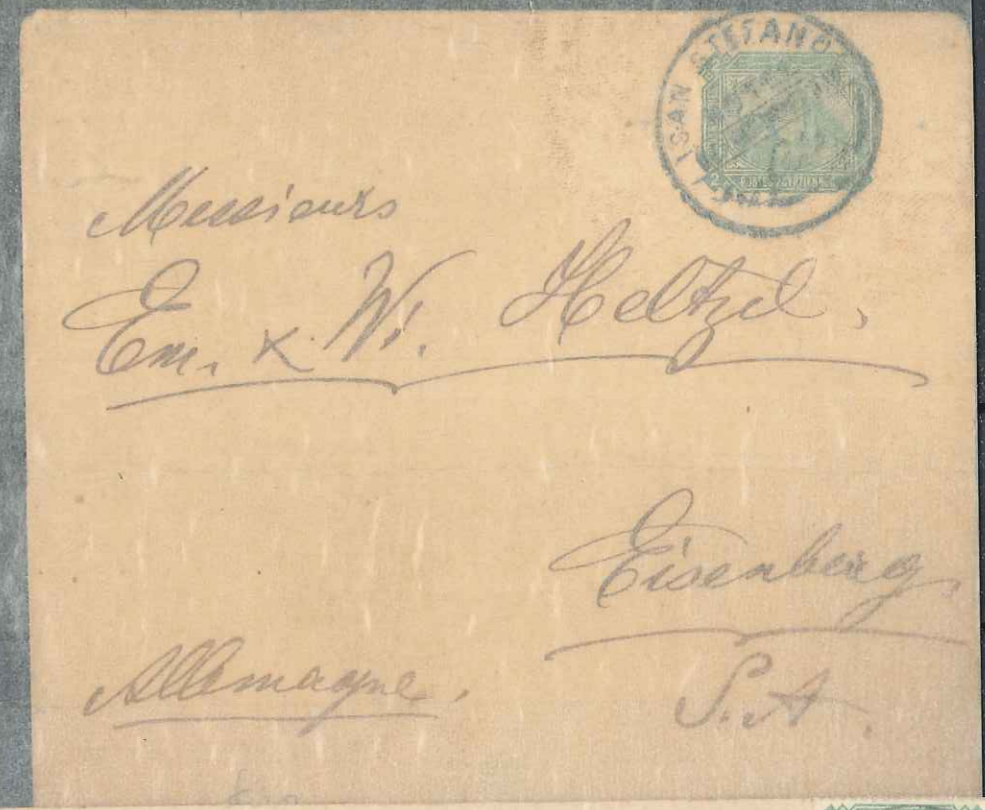 SAN STEFANO
Messieurs
Em. & W. Heltzel,
Eisenberg
Allemagne. S. A.